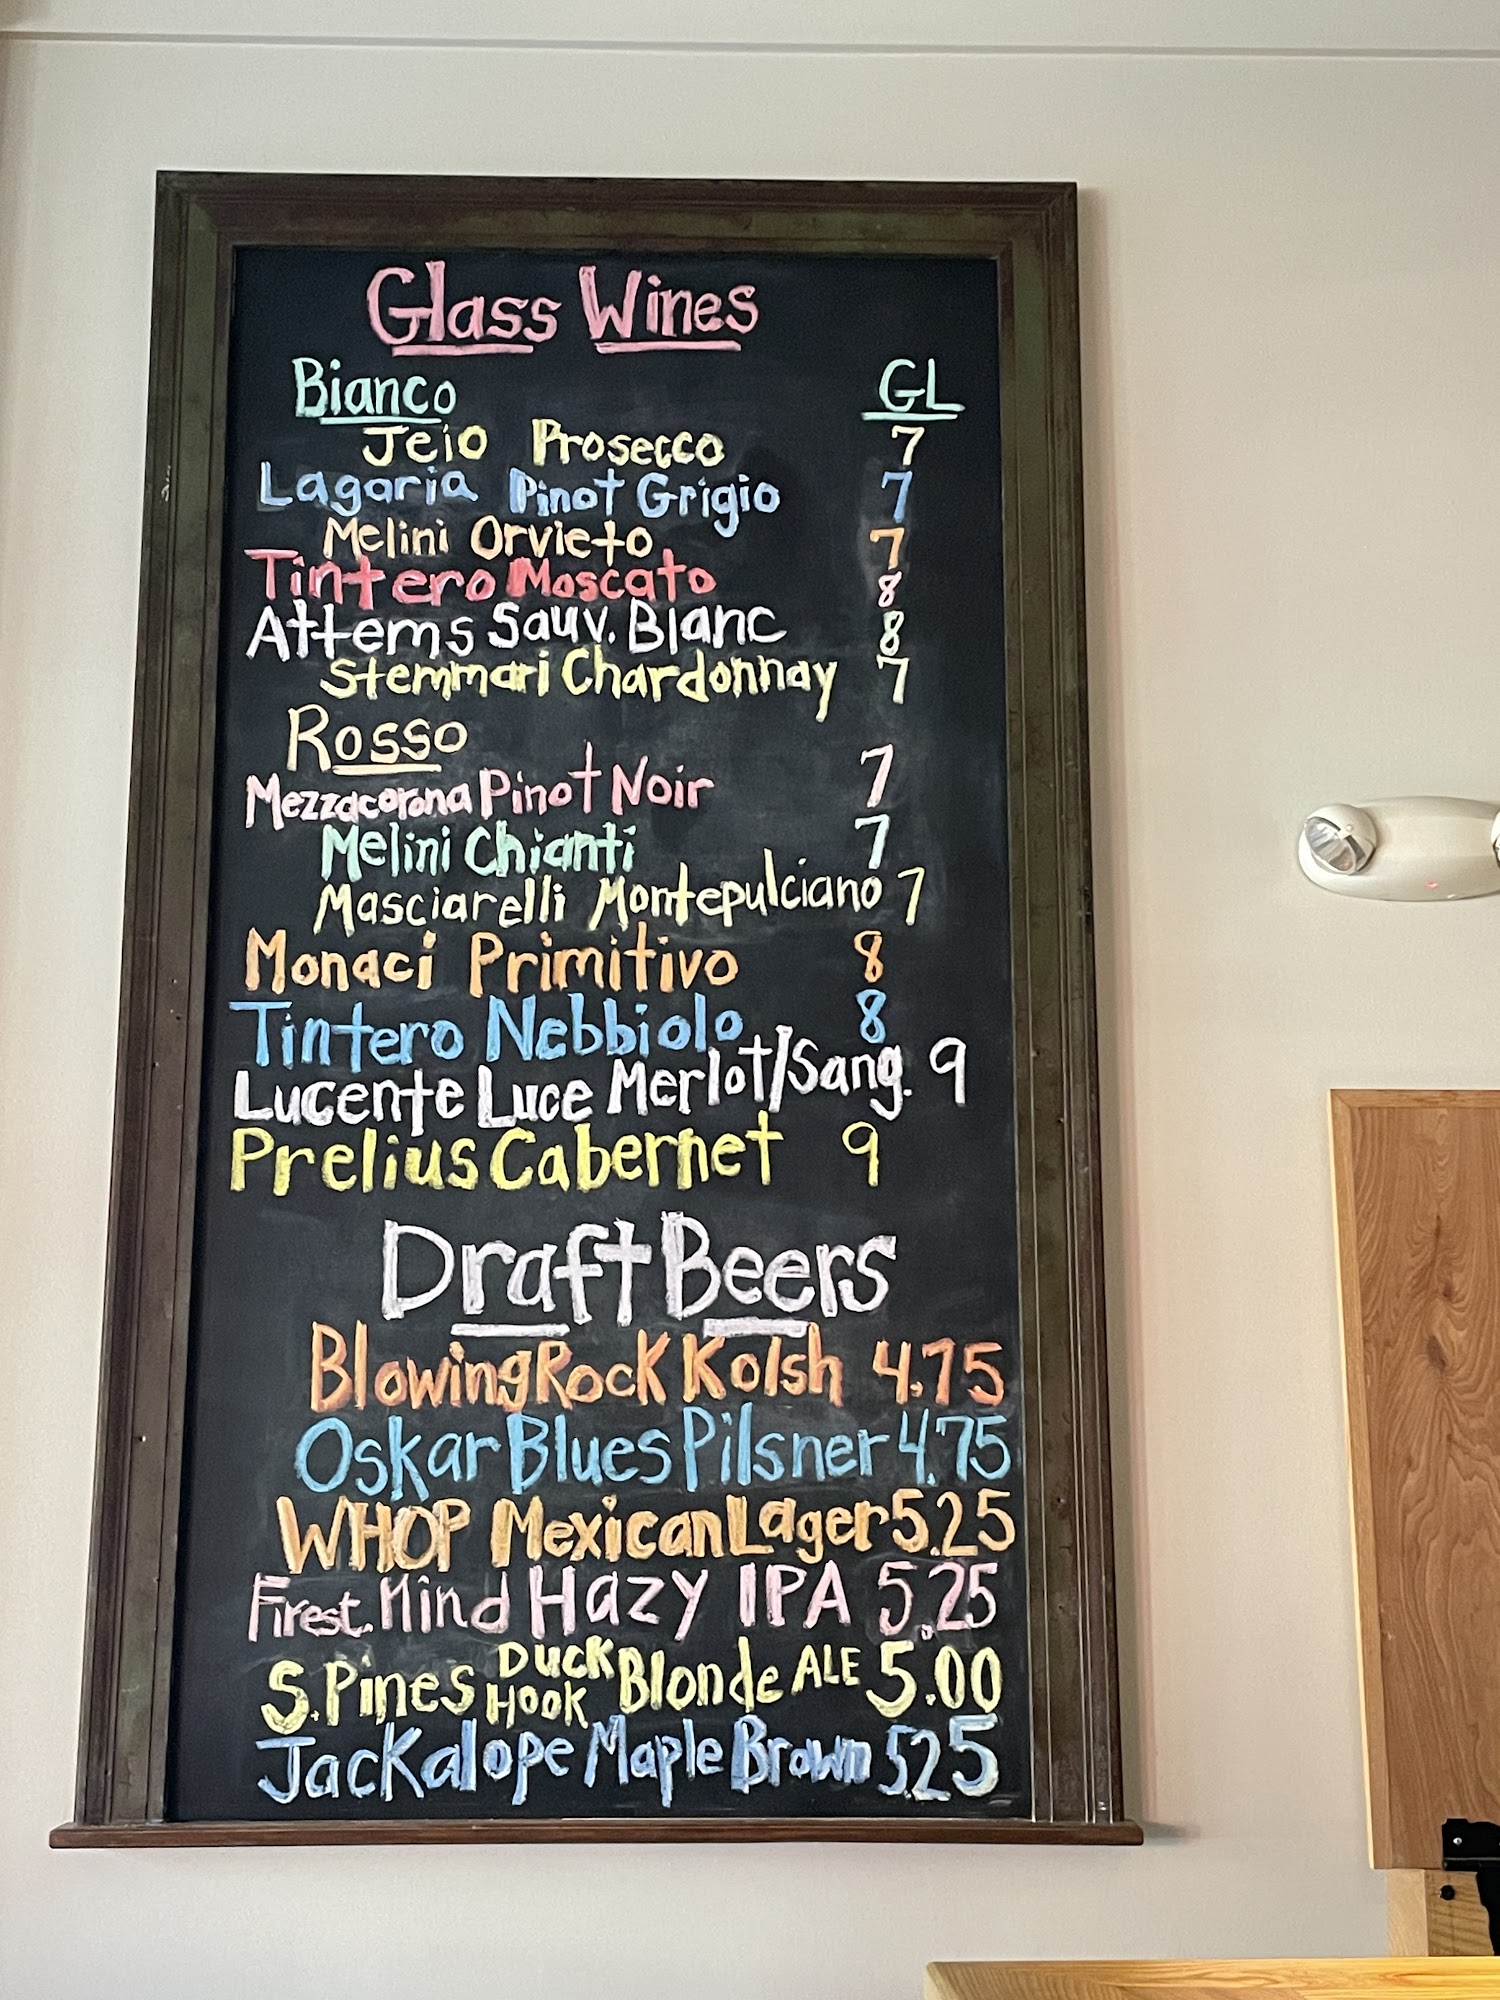 Glass Wines
Bianco GL
Jeio Prosecco 7
Lagaria Pinot Grigio 7
Melini Orvieto 7
Tintero Moscato 8
Attems Sauv. Blanc 8
Stemmari Chardonnay 7
Rosso
Mezzacorona Pinot Noir 7
Melini Chianti 7
Masciarelli Montepulciano 7
Monaci Primitivo 8
Tintero Nebbiolo 8
Lucente Luce Merlot/Sang. 9
Prelius Cabernet 9
Draft Beers
Blowing Rock Kolsh 4.75
Oskar Blues Pilsner 4.75
WHOP Mexican Lager 5.25
Firest. Mind Hazy IPA 5.25
S. Pines Duck Hook Blonde ALE 5.00
Jackalope Maple Brown 5.25